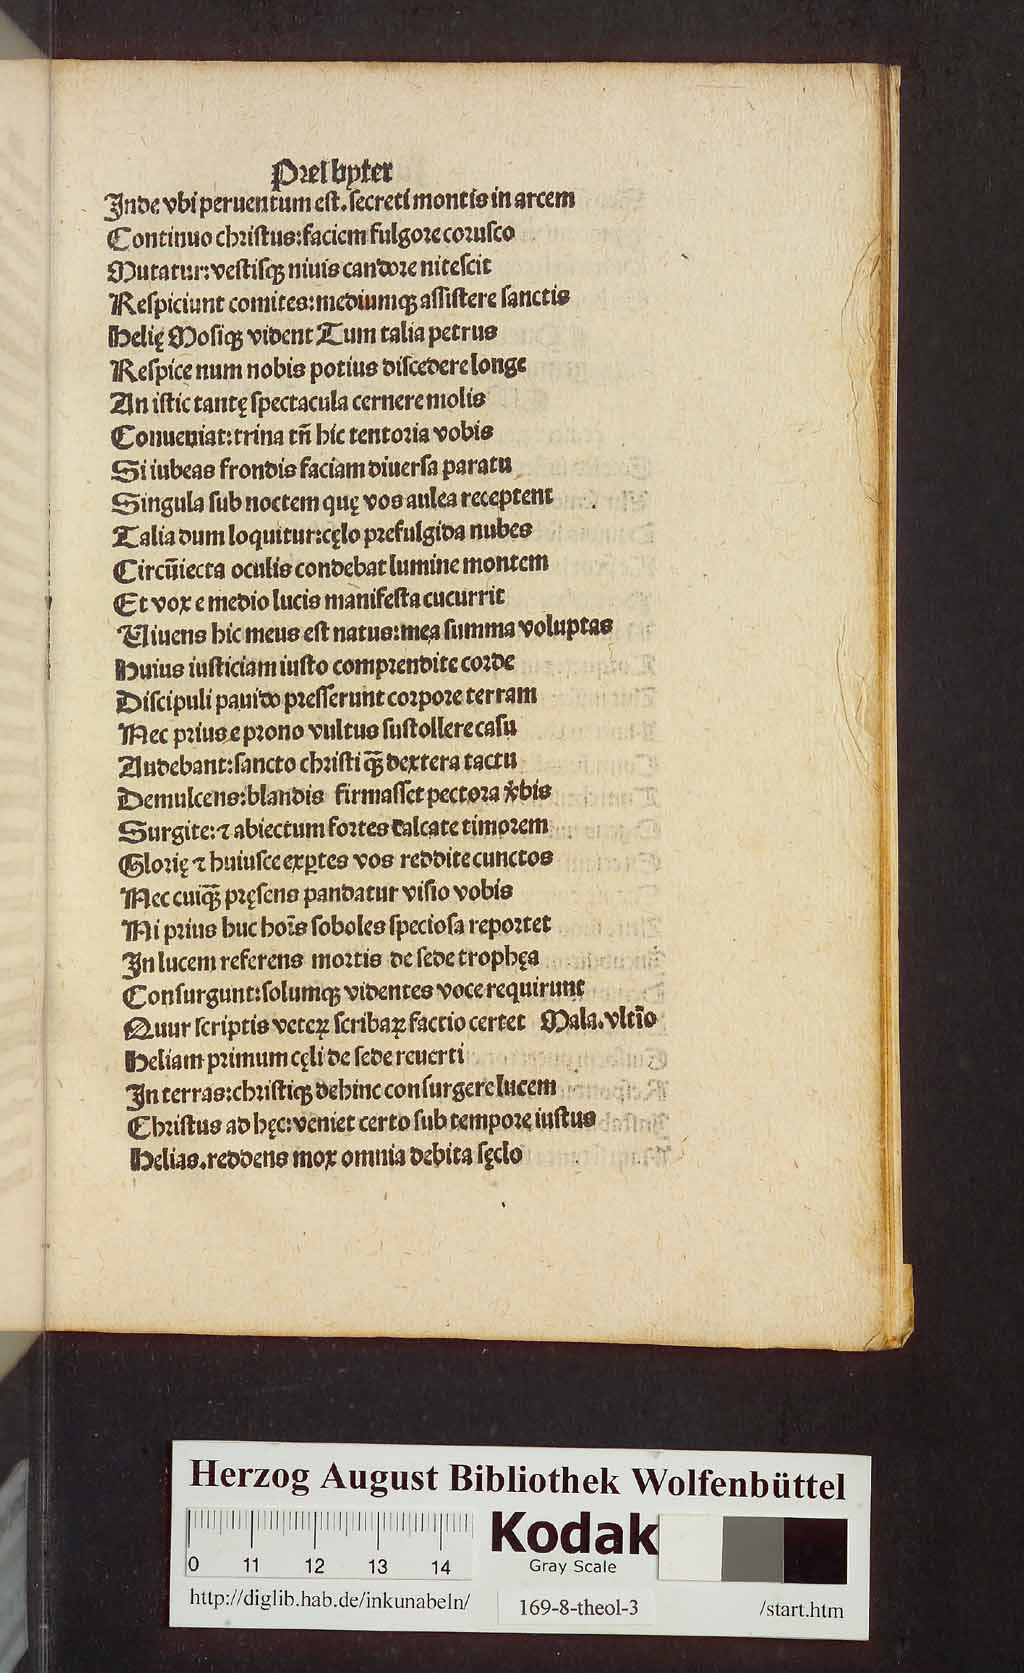 Preſbyter
Inde vbi peruentum eſt. ſecreti montis in arcem
Continuo chriſtus: faciem fulgore coruſco
Mutatur: veſtiſqꝫ niuis candore niteſcit
Reſpiciunt comites: mediumqꝫ aſſiſtere ſanctis
Helię Moſiqꝫ vident Tum talia petrus
Reſpice num nobis potius diſcedere longe
An iſtic tantę ſpectacula cernere molis
Conueniat: trina tn̄ hic tentoria vobis
Si iubeas frondis faciam diuerſa paratu
Singula ſub noctem quę vos aulea receptent
Talia dum loquitur: cęlo prefulgida nubes
Circūiecta oculis condebat lumine montem
Et vox e medio lucis manifeſta cucurrit
Uiuens hic meus eſt natus: mea ſumma voluptas
Huius iuſticiam iuſto comprendite corde
Diſcipuli pauido preſſerunt corpore terram
Nec prius e prono vultus ſuſtollere caſu
Audebant: ſancto chriſti qꝫ̄ dextera tactu
Demulcens: blandis firmaſſet pectora v̾bis
Surgite: ⁊ abiectum fortes calcate timorem
Glorię ⁊ huiuſce exꝑtes vos reddite cunctos
Nec cuiqꝫ̄ pręſens pandatur viſio vobis
Ni prius huc hoīs ſoboles ſpecioſa reportet
In lucem referens mortis de ſede trophęa
Conſurgunt: ſolumqꝫ videntes voce requirunt
Quur ſcriptis veteꝝ ſcribaꝝ factio certet Mala. vltīo
Heliam primum cęli de ſede reuerti
In terras: chriſtiqꝫ dehinc conſurgere lucem
Chriſtus ad hęc: veniet certo ſub tempore iuſtus
Helias. reddens mox omnia debita ſęclo
Herzog August Bibliothek Wolfenbüttel
0 11 12 13 14
Kodak
Gray Scale
http://diglib.hab.de/inkunabeln/ 169-8-theol-3 /start.htm